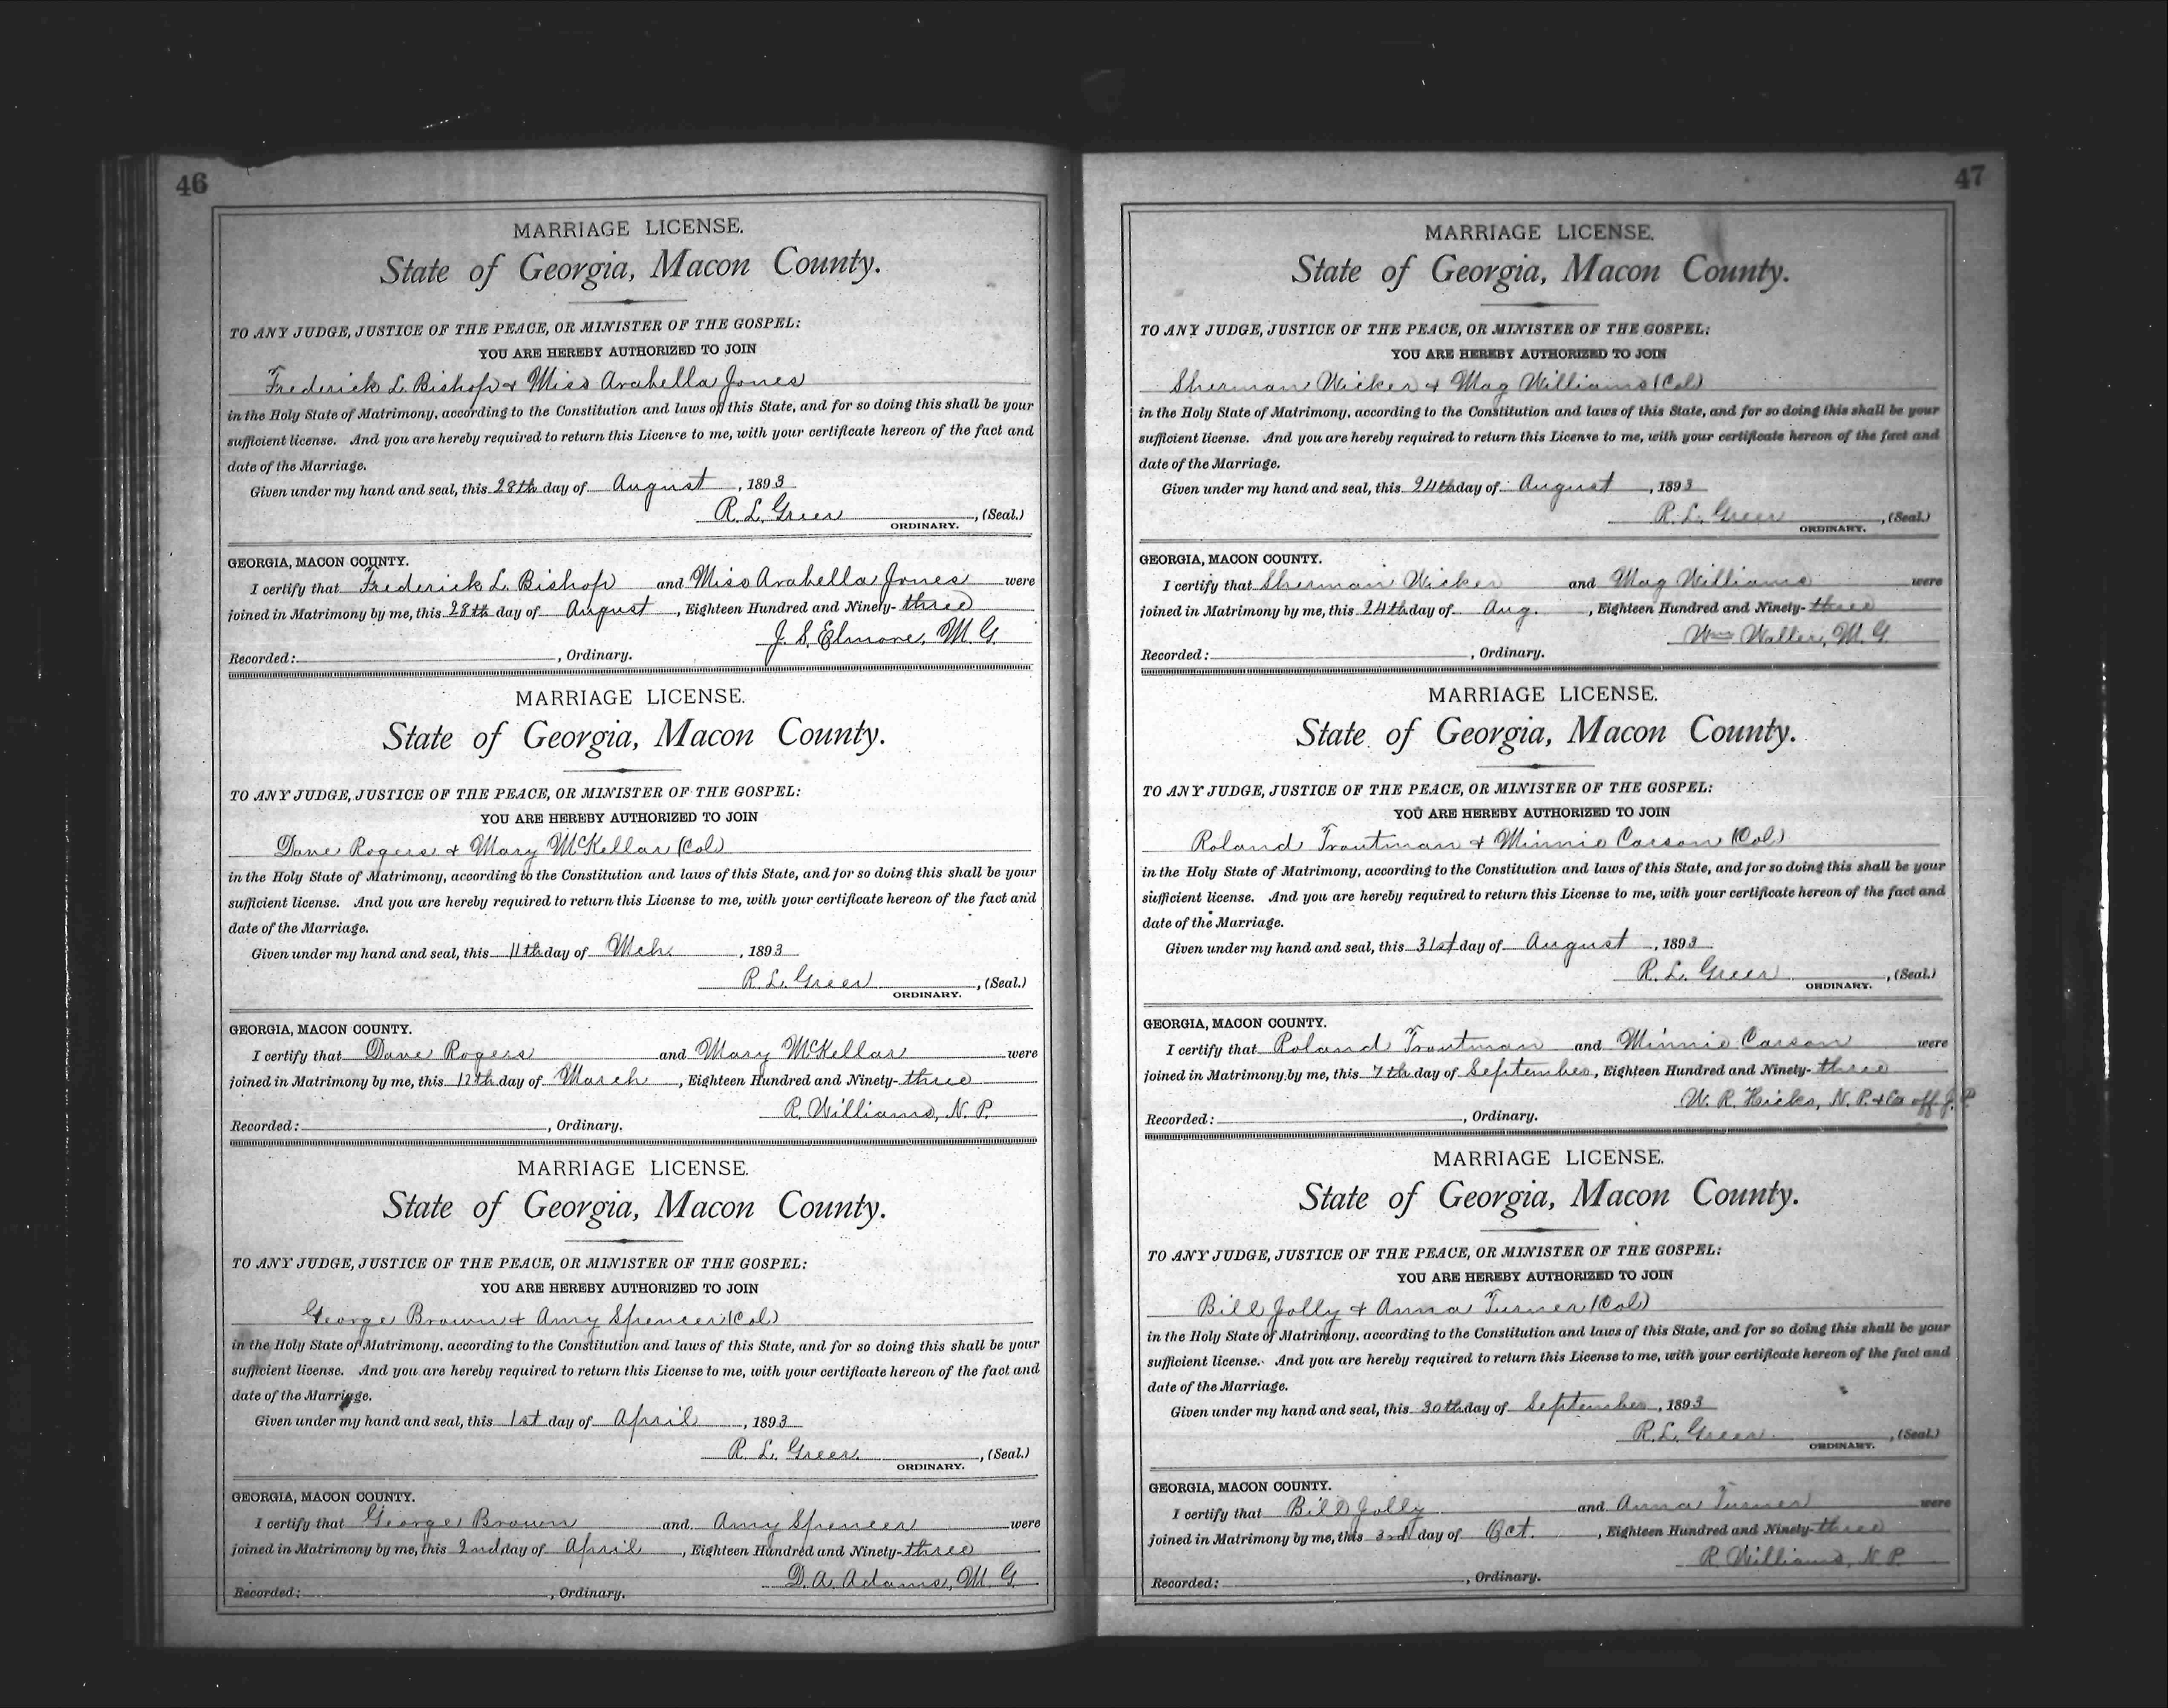 46
MARRIAGE LICENSE.
State of Georgia, Macon County.
TO ANY JUDGE, JUSTICE OF THE PEACE, OR MINISTER OF THE GOSPEL:
YOU ARE HEREBY AUTHORIZED TO JOIN
Frederick L. Bishop & Miss Arabella Jones
in the Holy State of Matrimony, according to the Constitution and laws of this State, and for so doing this shall be your
sufficient license. And you are hereby required to return this License to me, with your certificate hereon of the fact and
date of the Marriage.
Given under my hand and seal, this 28th day of August, 1893
R. L. Greer, (Seal.)
ORDINARY.
GEORGIA, MACON COUNTY.
I certify that Frederick L. Bishop and Miss Arabella Jones were
joined in Matrimony by me, this 28th day of August, Eighteen Hundred and Ninety-three
J. S. Elmore, M. G.
Recorded: , Ordinary.
MARRIAGE LICENSE.
State of Georgia, Macon County.
TO ANY JUDGE, JUSTICE OF THE PEACE, OR MINISTER OF THE GOSPEL:
YOU ARE HEREBY AUTHORIZED TO JOIN
Dave Rogers & Mary McKellar (Col)
in the Holy State of Matrimony, according to the Constitution and laws of this State, and for so doing this shall be your
sufficient license. And you are hereby required to return this License to me, with your certificate hereon of the fact and
date of the Marriage.
Given under my hand and seal, this 11th day of Mch., 1893
R. L. Greer, (Seal.)
ORDINARY.
GEORGIA, MACON COUNTY.
I certify that Dave Rogers and Mary McKellar were
joined in Matrimony by me, this 12th day of March, Eighteen Hundred and Ninety-three
R. Williams, N. P.
Recorded: , Ordinary.
MARRIAGE LICENSE.
State of Georgia, Macon County.
TO ANY JUDGE, JUSTICE OF THE PEACE, OR MINISTER OF THE GOSPEL:
YOU ARE HEREBY AUTHORIZED TO JOIN
George Brown & Amy Spencer (Col)
in the Holy State of Matrimony, according to the Constitution and laws of this State, and for so doing this shall be your
sufficient license. And you are hereby required to return this License to me, with your certificate hereon of the fact and
date of the Marriage.
Given under my hand and seal, this 1st day of April, 1893
R. L. Greer, (Seal.)
ORDINARY.
GEORGIA, MACON COUNTY.
I certify that George Brown and Amy Spencer were
joined in Matrimony by me, this 2nd day of April, Eighteen Hundred and Ninety-three
D. A. Adams, M. G.
Recorded: , Ordinary.
47
MARRIAGE LICENSE.
State of Georgia, Macon County.
TO ANY JUDGE, JUSTICE OF THE PEACE, OR MINISTER OF THE GOSPEL:
YOU ARE HEREBY AUTHORIZED TO JOIN
Sherman Wicker & Mag Williams (Col)
in the Holy State of Matrimony, according to the Constitution and laws of this State, and for so doing this shall be your
sufficient license. And you are hereby required to return this License to me, with your certificate hereon of the fact and
date of the Marriage.
Given under my hand and seal, this 24th day of August, 1893
R. L. Greer, (Seal.)
ORDINARY.
GEORGIA, MACON COUNTY.
I certify that Sherman Wicker and Mag Williams were
joined in Matrimony by me, this 24th day of Aug., Eighteen Hundred and Ninety-three
Wm Waller, M. G.
Recorded: , Ordinary.
MARRIAGE LICENSE.
State of Georgia, Macon County.
TO ANY JUDGE, JUSTICE OF THE PEACE, OR MINISTER OF THE GOSPEL:
YOU ARE HEREBY AUTHORIZED TO JOIN
Roland Troutman & Minnie Carson (Col)
in the Holy State of Matrimony, according to the Constitution and laws of this State, and for so doing this shall be your
sufficient license. And you are hereby required to return this License to me, with your certificate hereon of the fact and
date of the Marriage.
Given under my hand and seal, this 31st day of August, 1893
R. L. Greer, (Seal.)
ORDINARY.
GEORGIA, MACON COUNTY.
I certify that Roland Troutman and Minnie Carson were
joined in Matrimony by me, this 7th day of September, Eighteen Hundred and Ninety-three
W. R. Hicks, N. P. & Ex off J. P.
Recorded: , Ordinary.
MARRIAGE LICENSE.
State of Georgia, Macon County.
TO ANY JUDGE, JUSTICE OF THE PEACE, OR MINISTER OF THE GOSPEL:
YOU ARE HEREBY AUTHORIZED TO JOIN
Bill Jolly & Anna Turner (Col)
in the Holy State of Matrimony, according to the Constitution and laws of this State, and for so doing this shall be your
sufficient license. And you are hereby required to return this License to me, with your certificate hereon of the fact and
date of the Marriage.
Given under my hand and seal, this 30th day of September, 1893
R. L. Greer, (Seal.)
ORDINARY.
GEORGIA, MACON COUNTY.
I certify that Bill Jolly and Anna Turner were
joined in Matrimony by me, this 3rd day of Oct., Eighteen Hundred and Ninety-three
R. Williams, N. P.
Recorded: , Ordinary.